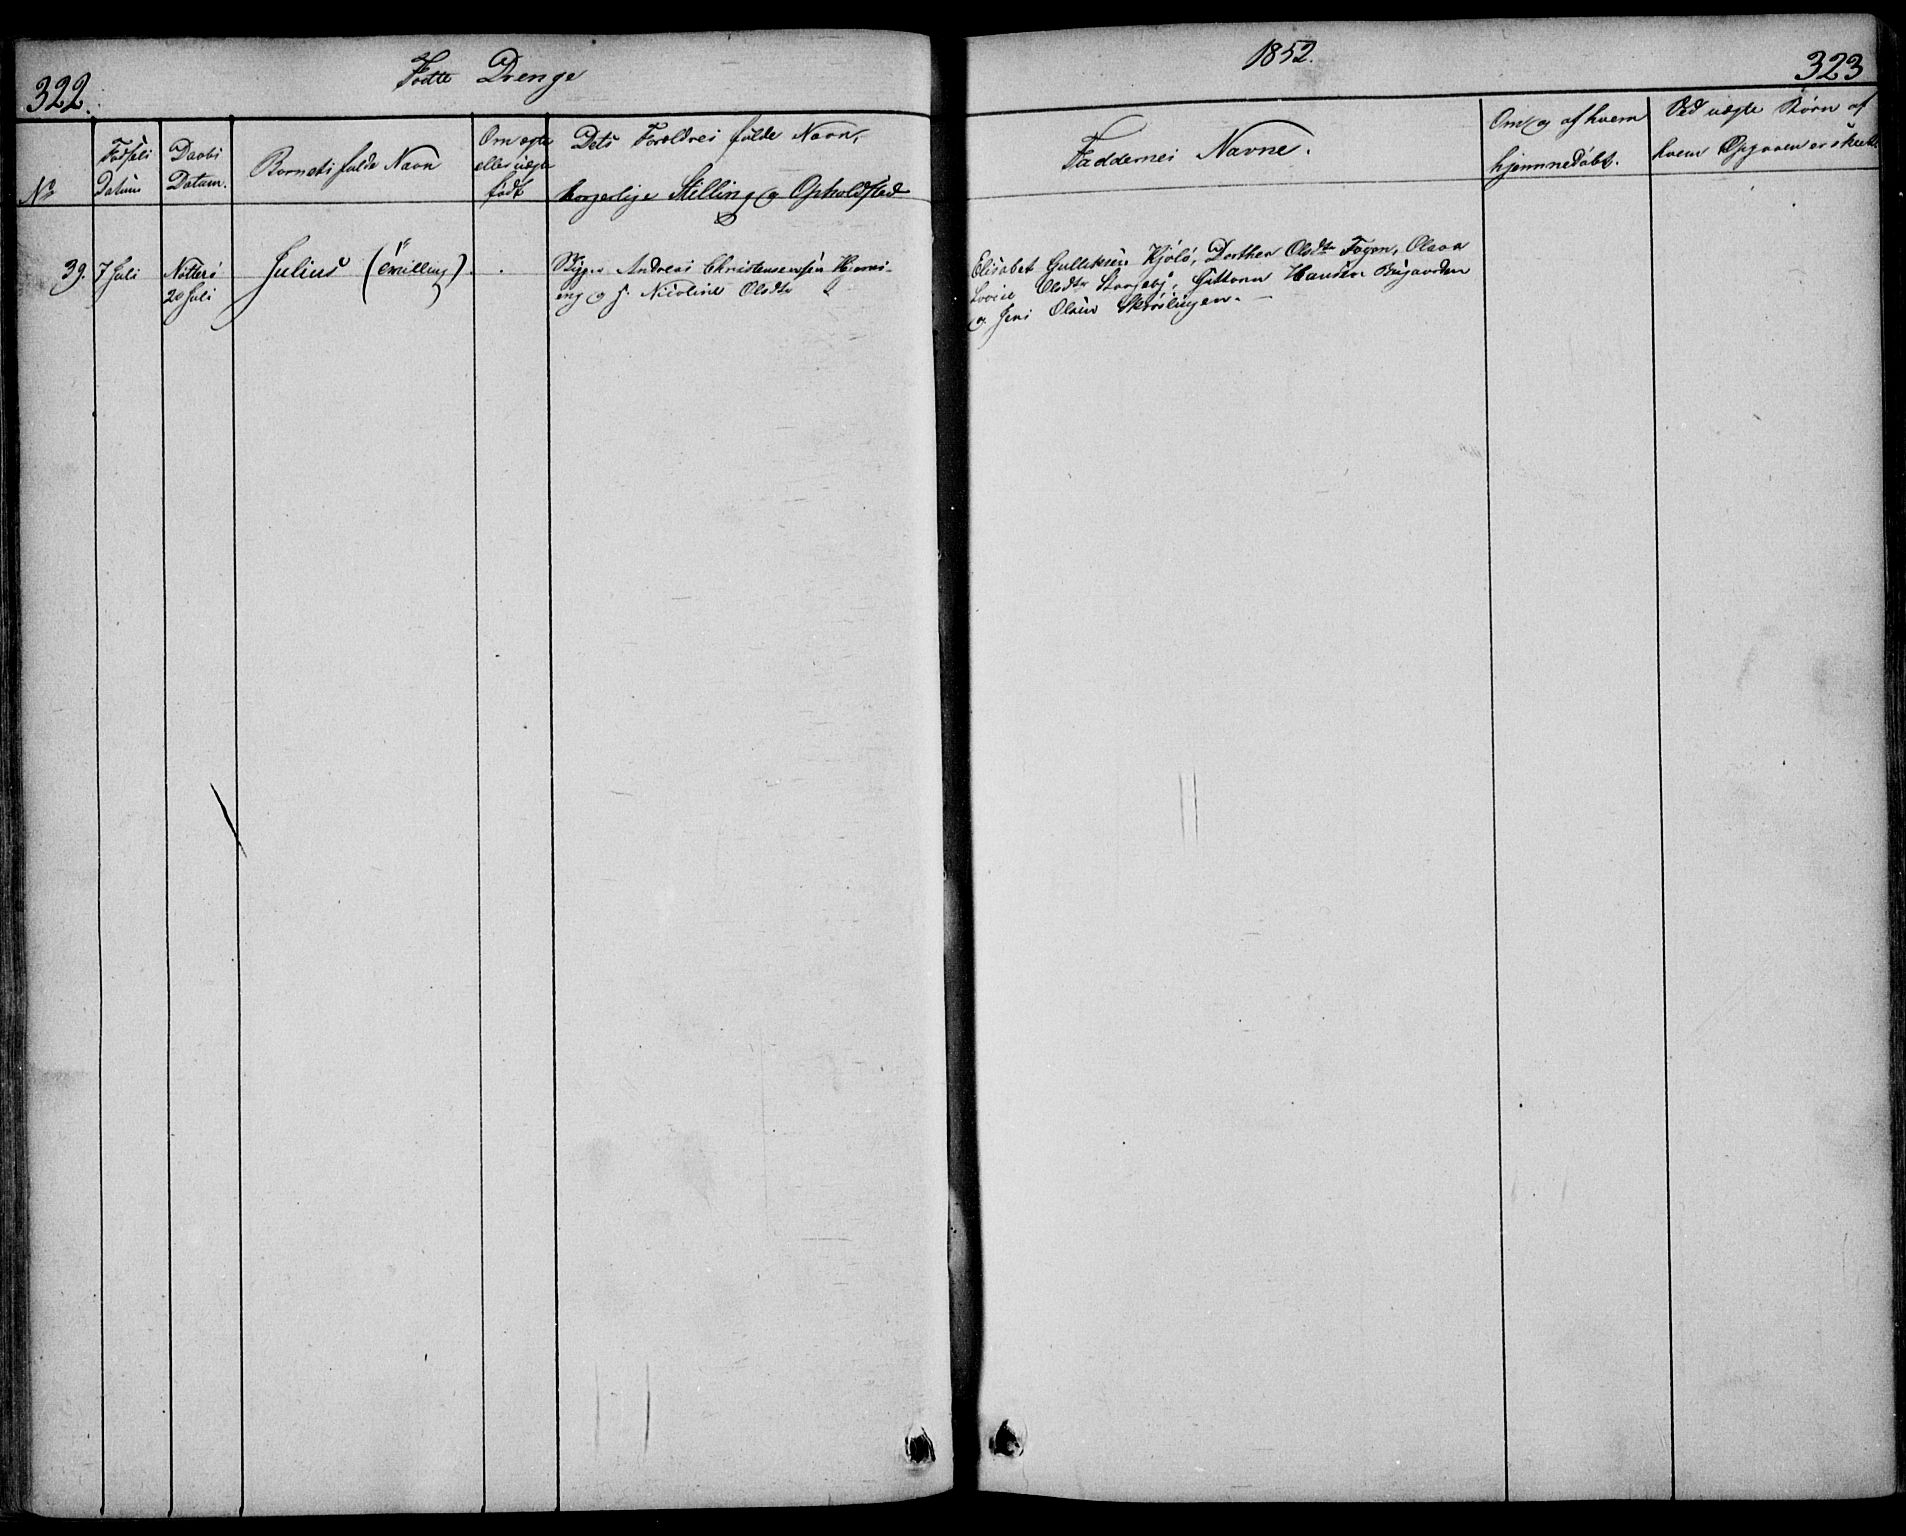 322.
Fødte Drenge
No
Fødsels
Datum
Daabs
Datum.
Barnets fulde Navn
Om ægte
eller uægte
født
Dets Forældres fulde Navn,
borgerlige Stilling og Opholdsted
39.
7 Juli
Nøtterø
20 Juli
Julius (Tvilling)
.
Skipper Andreas Christensen
eng og h. Nicoline Olsdtr
1852.
323
Faddernes Navne.
Om og af hvem
hjemmedøbt.
Ved uægte Børn af
hvem Opgaven er skeet
Elisabet Gulliksen Kjølø, Dorthea Olsdtr Fagen, Olava
Lovise Olsdtr, Guttorm Hansen Bugaarden
og Jens Olsen